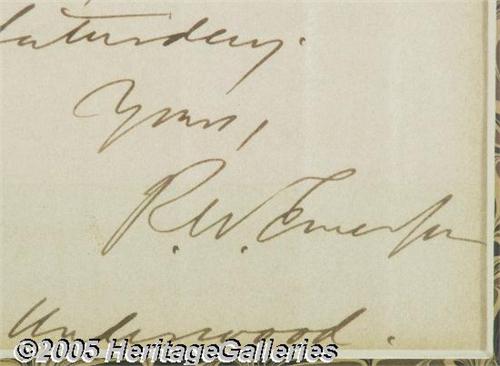 Saturday.
Yours,
R. W. Emerson
Underwood.
©2005 HeritageGalleries